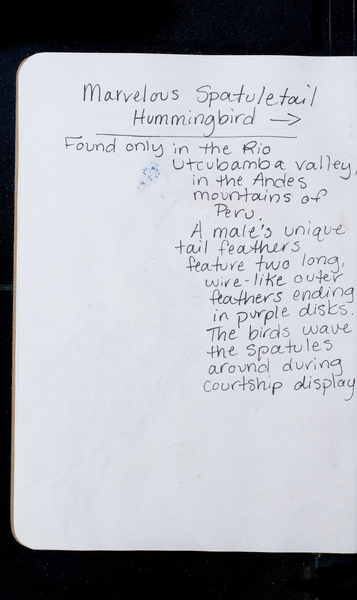 Marvelous Spatuletail
Hummingbird →
Found only in the Rio
Utcubamba valley,
in the Andes
mountains of
Peru.
A male's unique
tail feathers
feature two long,
wire-like outer
feathers ending
in purple disks.
The birds wave
the spatules
around during
courtship display